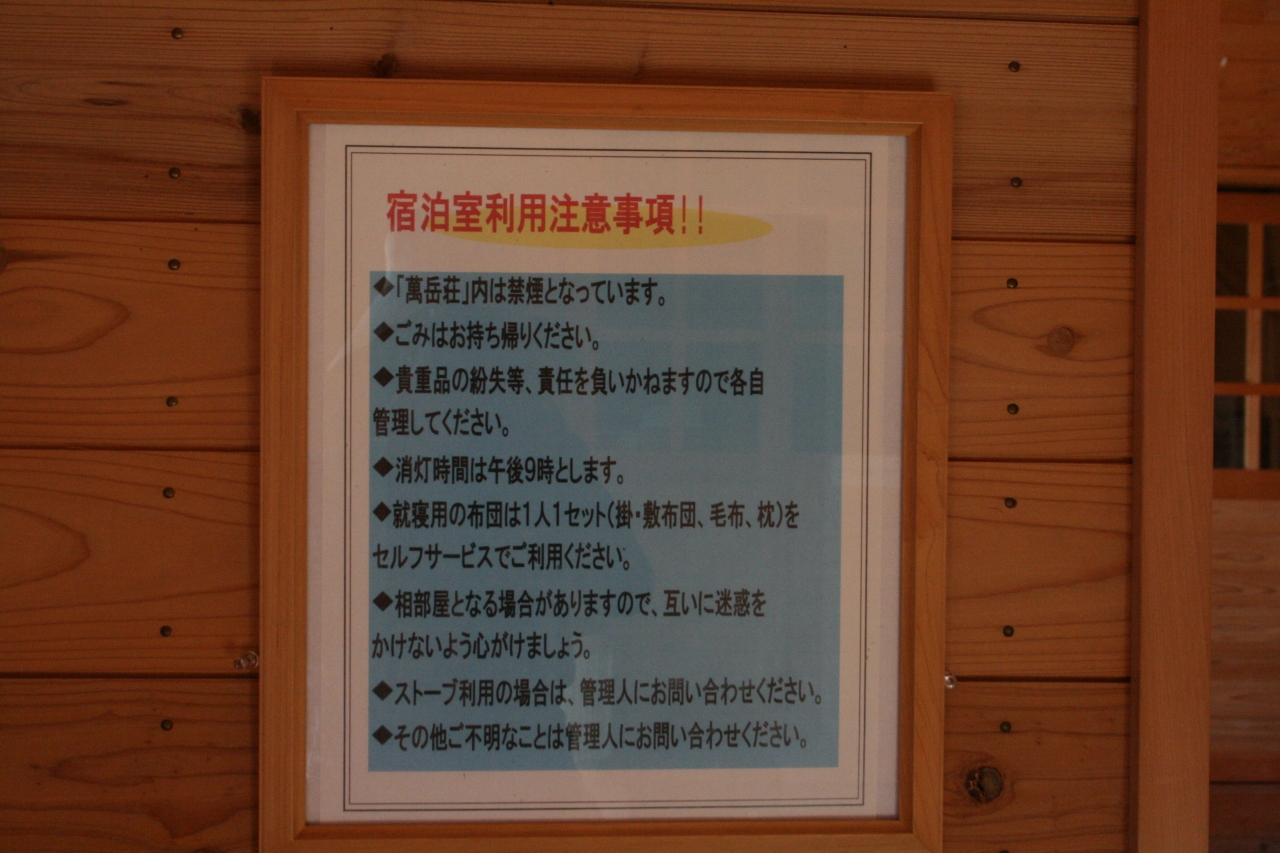 宿泊室利用注意事項!!
◆「萬岳荘」内は禁煙となっています。
◆ごみはお持ち帰りください。
◆貴重品の紛失等、責任を負いかねますので各自
管理してください。
◆消灯時間は午後9時とします。
◆就寝用の布団は1人1セット(掛・敷布団、毛布、枕)を
セルフサービスでご利用ください。
◆相部屋となる場合がありますので、互いに迷惑を
かけないよう心がけましょう。
◆ストーブ利用の場合は、管理人にお問い合わせください。
◆その他ご不明なことは管理人にお問い合わせください。